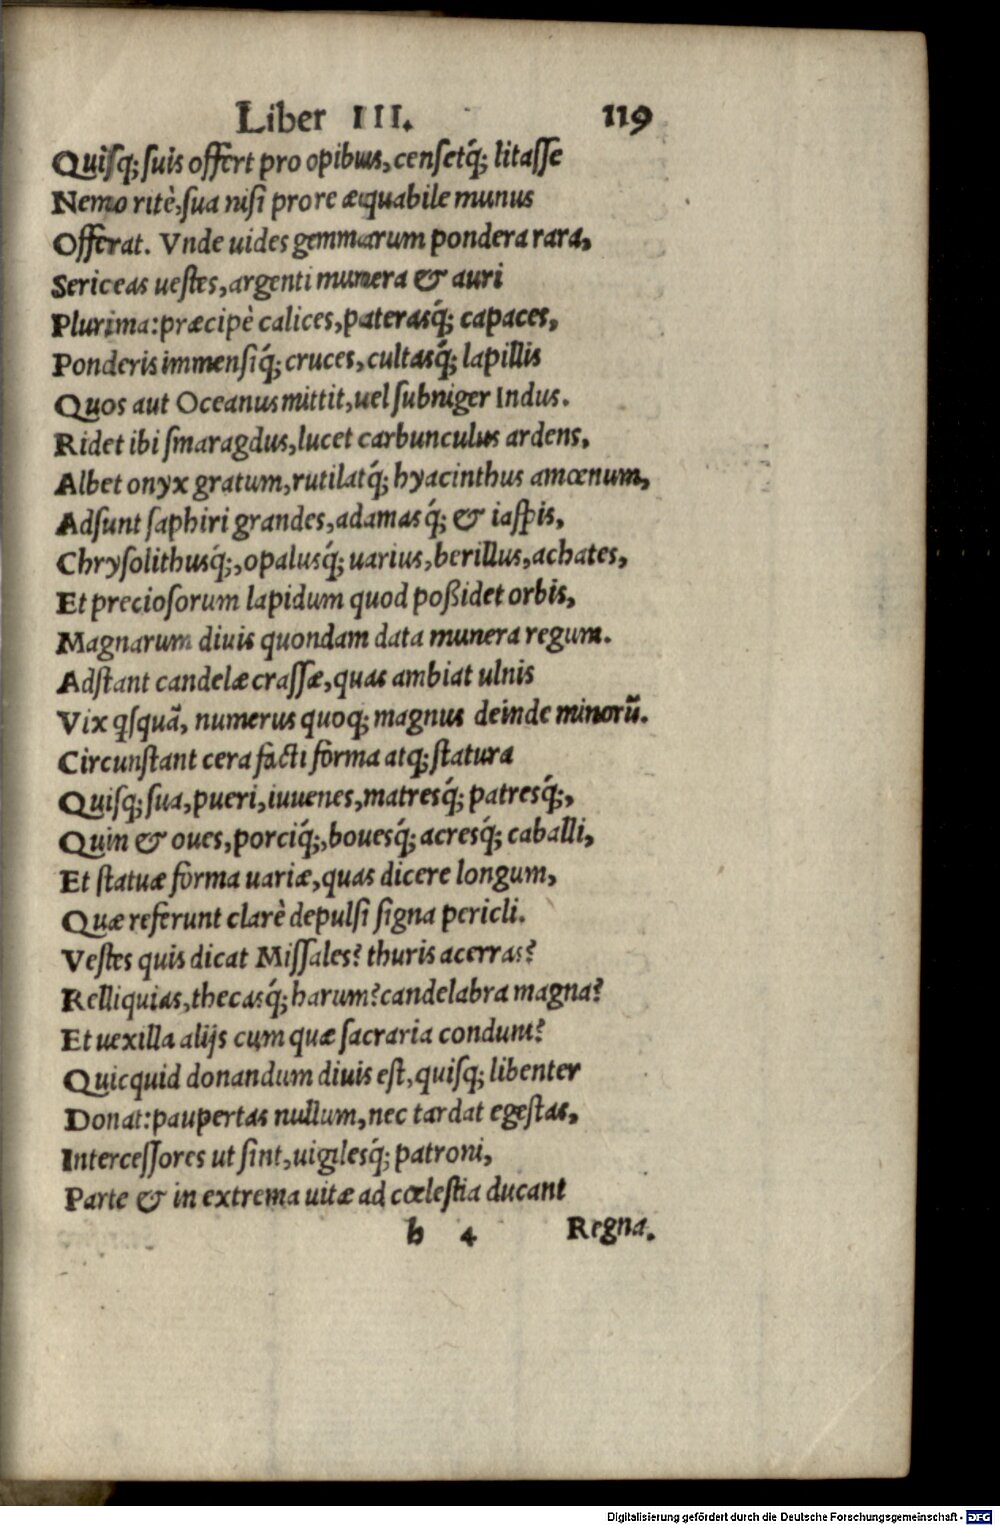 Liber III. 119
Quisq; suis offert pro opibus, censetq́; litasse
Nemo ritè, sua nisi pro re æquabile munus
Offerat. Vnde uides gemmarum pondera rara,
Sericeas uestes, argenti munera & auri
Plurima: præcipè calices, paterasq́; capaces,
Ponderis immensiq́; cruces, cultasq́; lapillis
Quos aut Oceanus mittit, uel subniger Indus.
Ridet ibi smaragdus, lucet carbunculus ardens,
Albet onyx gratum, rutilatq́; hyacinthus amœnum,
Adsunt saphiri grandes, adamasq́; & iaspis,
Chrysolithusq́;, opalusq́; uarius, berillus, achates,
Et preciosorum lapidum quod poßidet orbis,
Magnarum diuis quondam data munera regum.
Adstant candelæ crassæ, quas ambiat ulnis
Vix qsquã, numerus quoq; magnus deinde minorũ.
Circunstant cera facti forma atq; statura
Quisq; sua, pueri, iuuenes, matresq́; patresq́;,
Quin & oues, porciq́;, bouesq́; acresq́; caballi,
Et statuæ forma uariæ, quas dicere longum,
Quæ referunt clarè depulsi signa pericli.
Vestes quis dicat Missales? thuris acerras?
Relliquias, thecasq́; harum? candelabra magna?
Et uexilla alijs cum quæ sacraria condunt?
Quicquid donandum diuis est, quisq; libenter
Donat: paupertas nullum, nec tardat egestas,
Intercessores ut sint, uigilesq́; patroni,
Parte & in extrema uitæ ad cœlestia ducant
b 4 Regna.
Digitalisierung gefördert durch die Deutsche Forschungsgemeinschaft - DFG